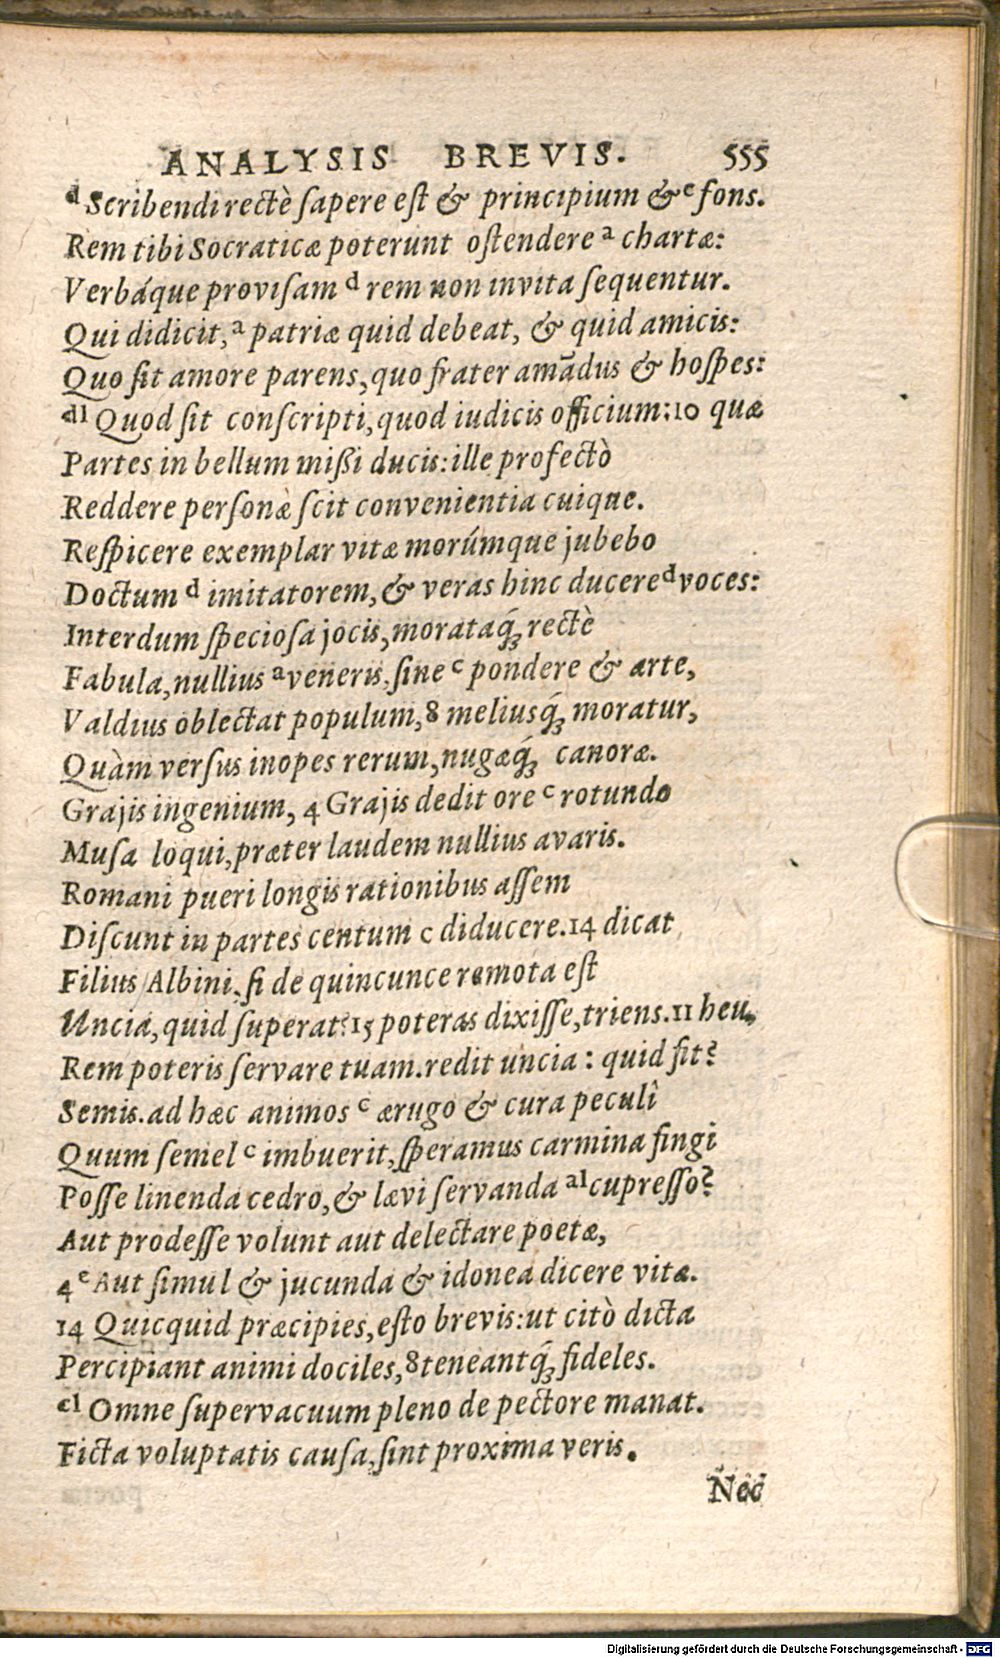 ANALYSIS BREVIS. 555
ᵈScribendi rectè ſapere eſt & principium &ᵉ fons.
Rem tibi Socraticæ poterunt oſtendere ᵃ chartæ:
Verbáque proviſam ᵈ rem non invita ſequentur.
Qui didicit,ᵃ patriæ quid debeat, & quid amicis:
Quo ſit amore parens, quo frater amādus & hoſpes:
ᵈˡ Quod ſit conſcripti, quod iudicis officium: 10 quæ
Partes in bellum mißi ducis: ille profectò
Reddere perſonæ ſcit convenientia cuique.
Reſpicere exemplar vitæ morúmque jubebo
Doctum ᵈ imitatorem, & veras hinc ducere ᵈ voces:
Interdum ſpecioſa jocis, morataq́ꝫ rectè
Fabula, nullius ᵃ veneris, ſine ᶜ pondere & arte,
Valdius oblectat populum, 8 meliusq́ꝫ moratur,
Quàm verſus inopes rerum, nugæq́ꝫ canoræ.
Grajis ingenium, 4 Grajis dedit ore ᶜ rotundo
Muſa loqui, præter laudem nullius avaris.
Romani pueri longis rationibus aſſem
Diſcunt in partes centum c diducere. 14 dicat
Filius Albini, ſi de quincunce remota eſt
Uncia, quid ſuperat? 15 poteras dixiſſe, triens. 11 heu,
Rem poteris ſervare tuam. redit uncia: quid fit?
Semis. ad hæc animos ᶜ ærugo & cura peculî
Quum ſemel ᶜ imbuerit, ſperamus carmina fingi
Poſſe linenda cedro, & lævi ſervanda ᵃˡ cupreſſo?
Aut prodeſſe volunt aut delectare poetæ,
4 ᵉ Aut ſimul & jucunda & idonea dicere vitæ.
14 Quicquid præcipies, eſto brevis: ut citò dicta
Percipiant animi dociles, 8 teneantq́ꝫ fideles.
ᶜˡ Omne ſupervacuum pleno de pectore manat.
Ficta voluptatis cauſa, ſint proxima veris.
Nec
Digitalisierung gefördert durch die Deutsche Forschungsgemeinschaft - DFG